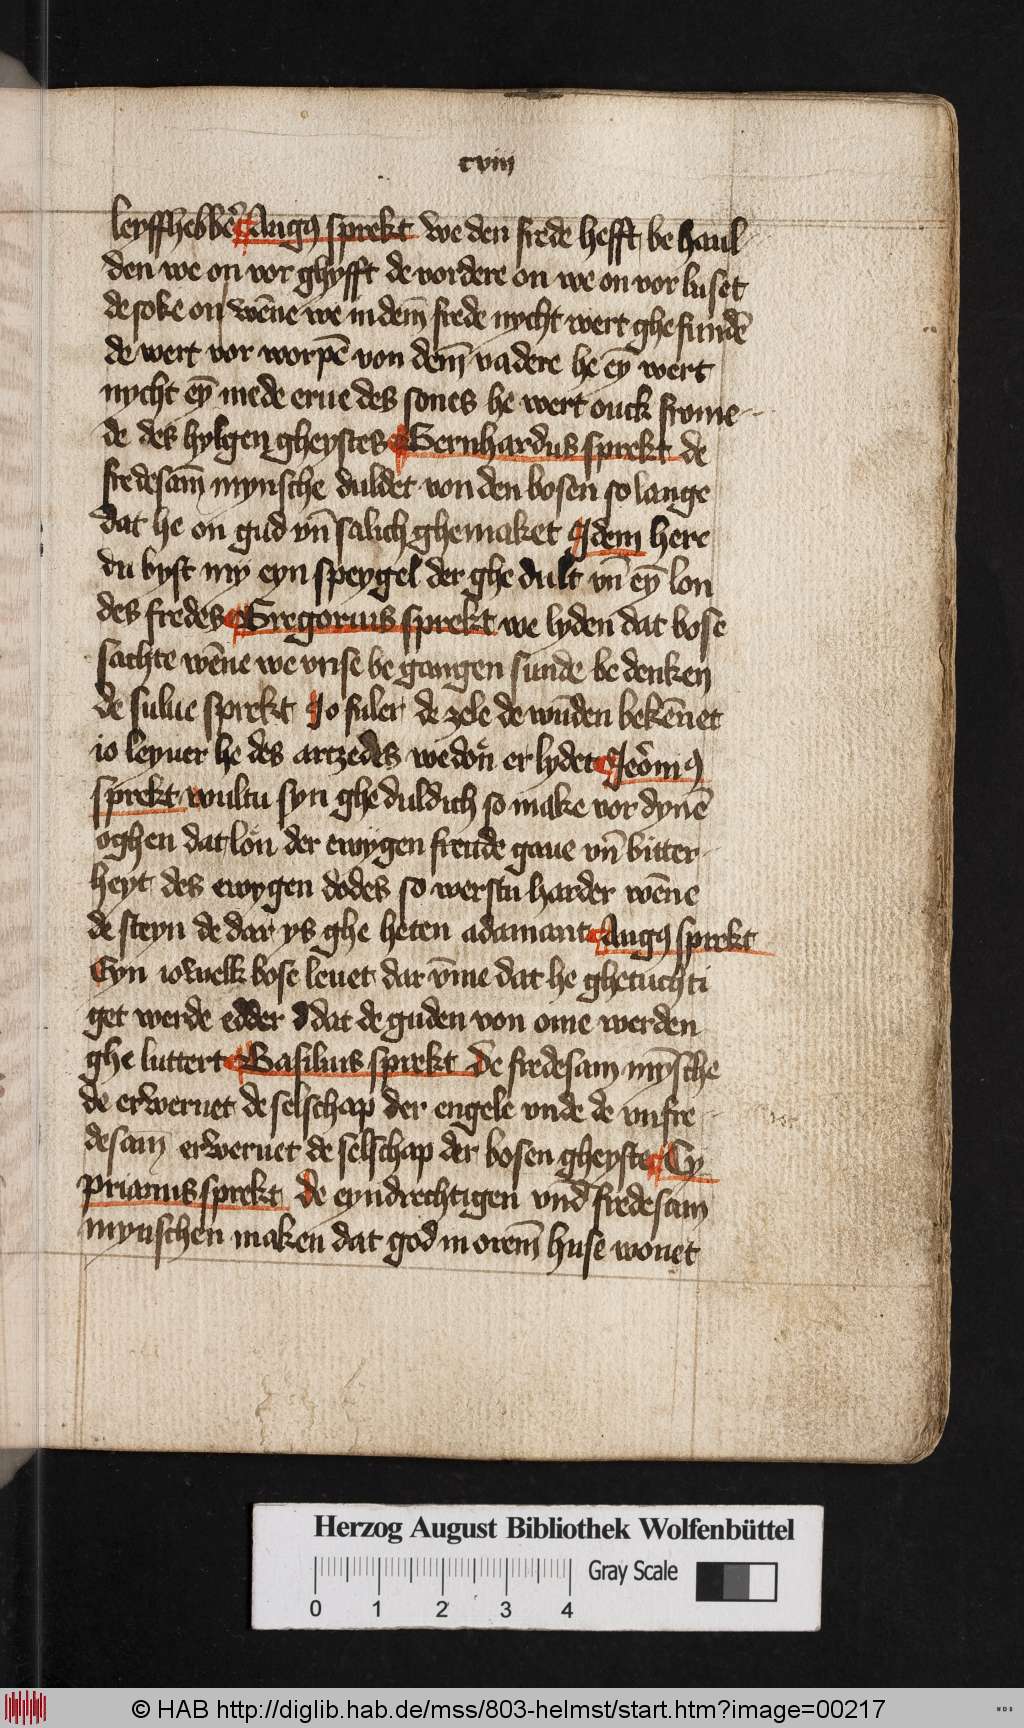 cviii
leyffhebbēr Augꝯ sprekt we den frede hefft be haul
den we on vor ghyfft de vordere on we on vor luset
de soke on wēne we in dem̄ frede nycht wert ghe fundē
de wert vor worpē von dem̄ vadere he eȳ wert
nycht eȳ mede erue des sones he wert ouck frome
de des hylgen gheystes Bernhardus sprekt de
fredesam̄ mynsche duldet von den bosen so lange
dat he on gud vn̄ salich ghemaket Idem here
du byst my eyn speygel der ghe dult vn̄ eȳ lon
des fredes Gregorius sprekt we lyden dat bose
sachte wēne we vnse be gangen sunde be denken
de sulue sprekt Jo suler de zele de wūden bekēnet
io leyuer he des artzedes wedōn er lydet Jerōmꝯ
sprekt wultu syn ghe duldich so make vor dynē
oghen dat lon der ewygen freude gaue vn̄ bitter
heyt des ewygen dodes so werstu harder wēne
de steyn de dar ys ghe heten adamant Augꝯ sprekt
Eyn iowelk bose leuet dar v̄me dat he ghetuchti
get werde edder dat de guden von ome werden
ghe luttert Basilius sprekt De fredesam mȳsche
de erwernet de selschap der engele vnde de vnfre
desam̄ erwernet de selschap der bosen gheyste Cy
prianus sprekt de eyndrechtigen vnd fredesam
mynschen maken dat god in orem̄ huse wonet
Herzog August Bibliothek Wolfenbüttel
Gray Scale
0 1 2 3 4
© HAB http://diglib.hab.de/mss/803-helmst/start.htm?image=00217